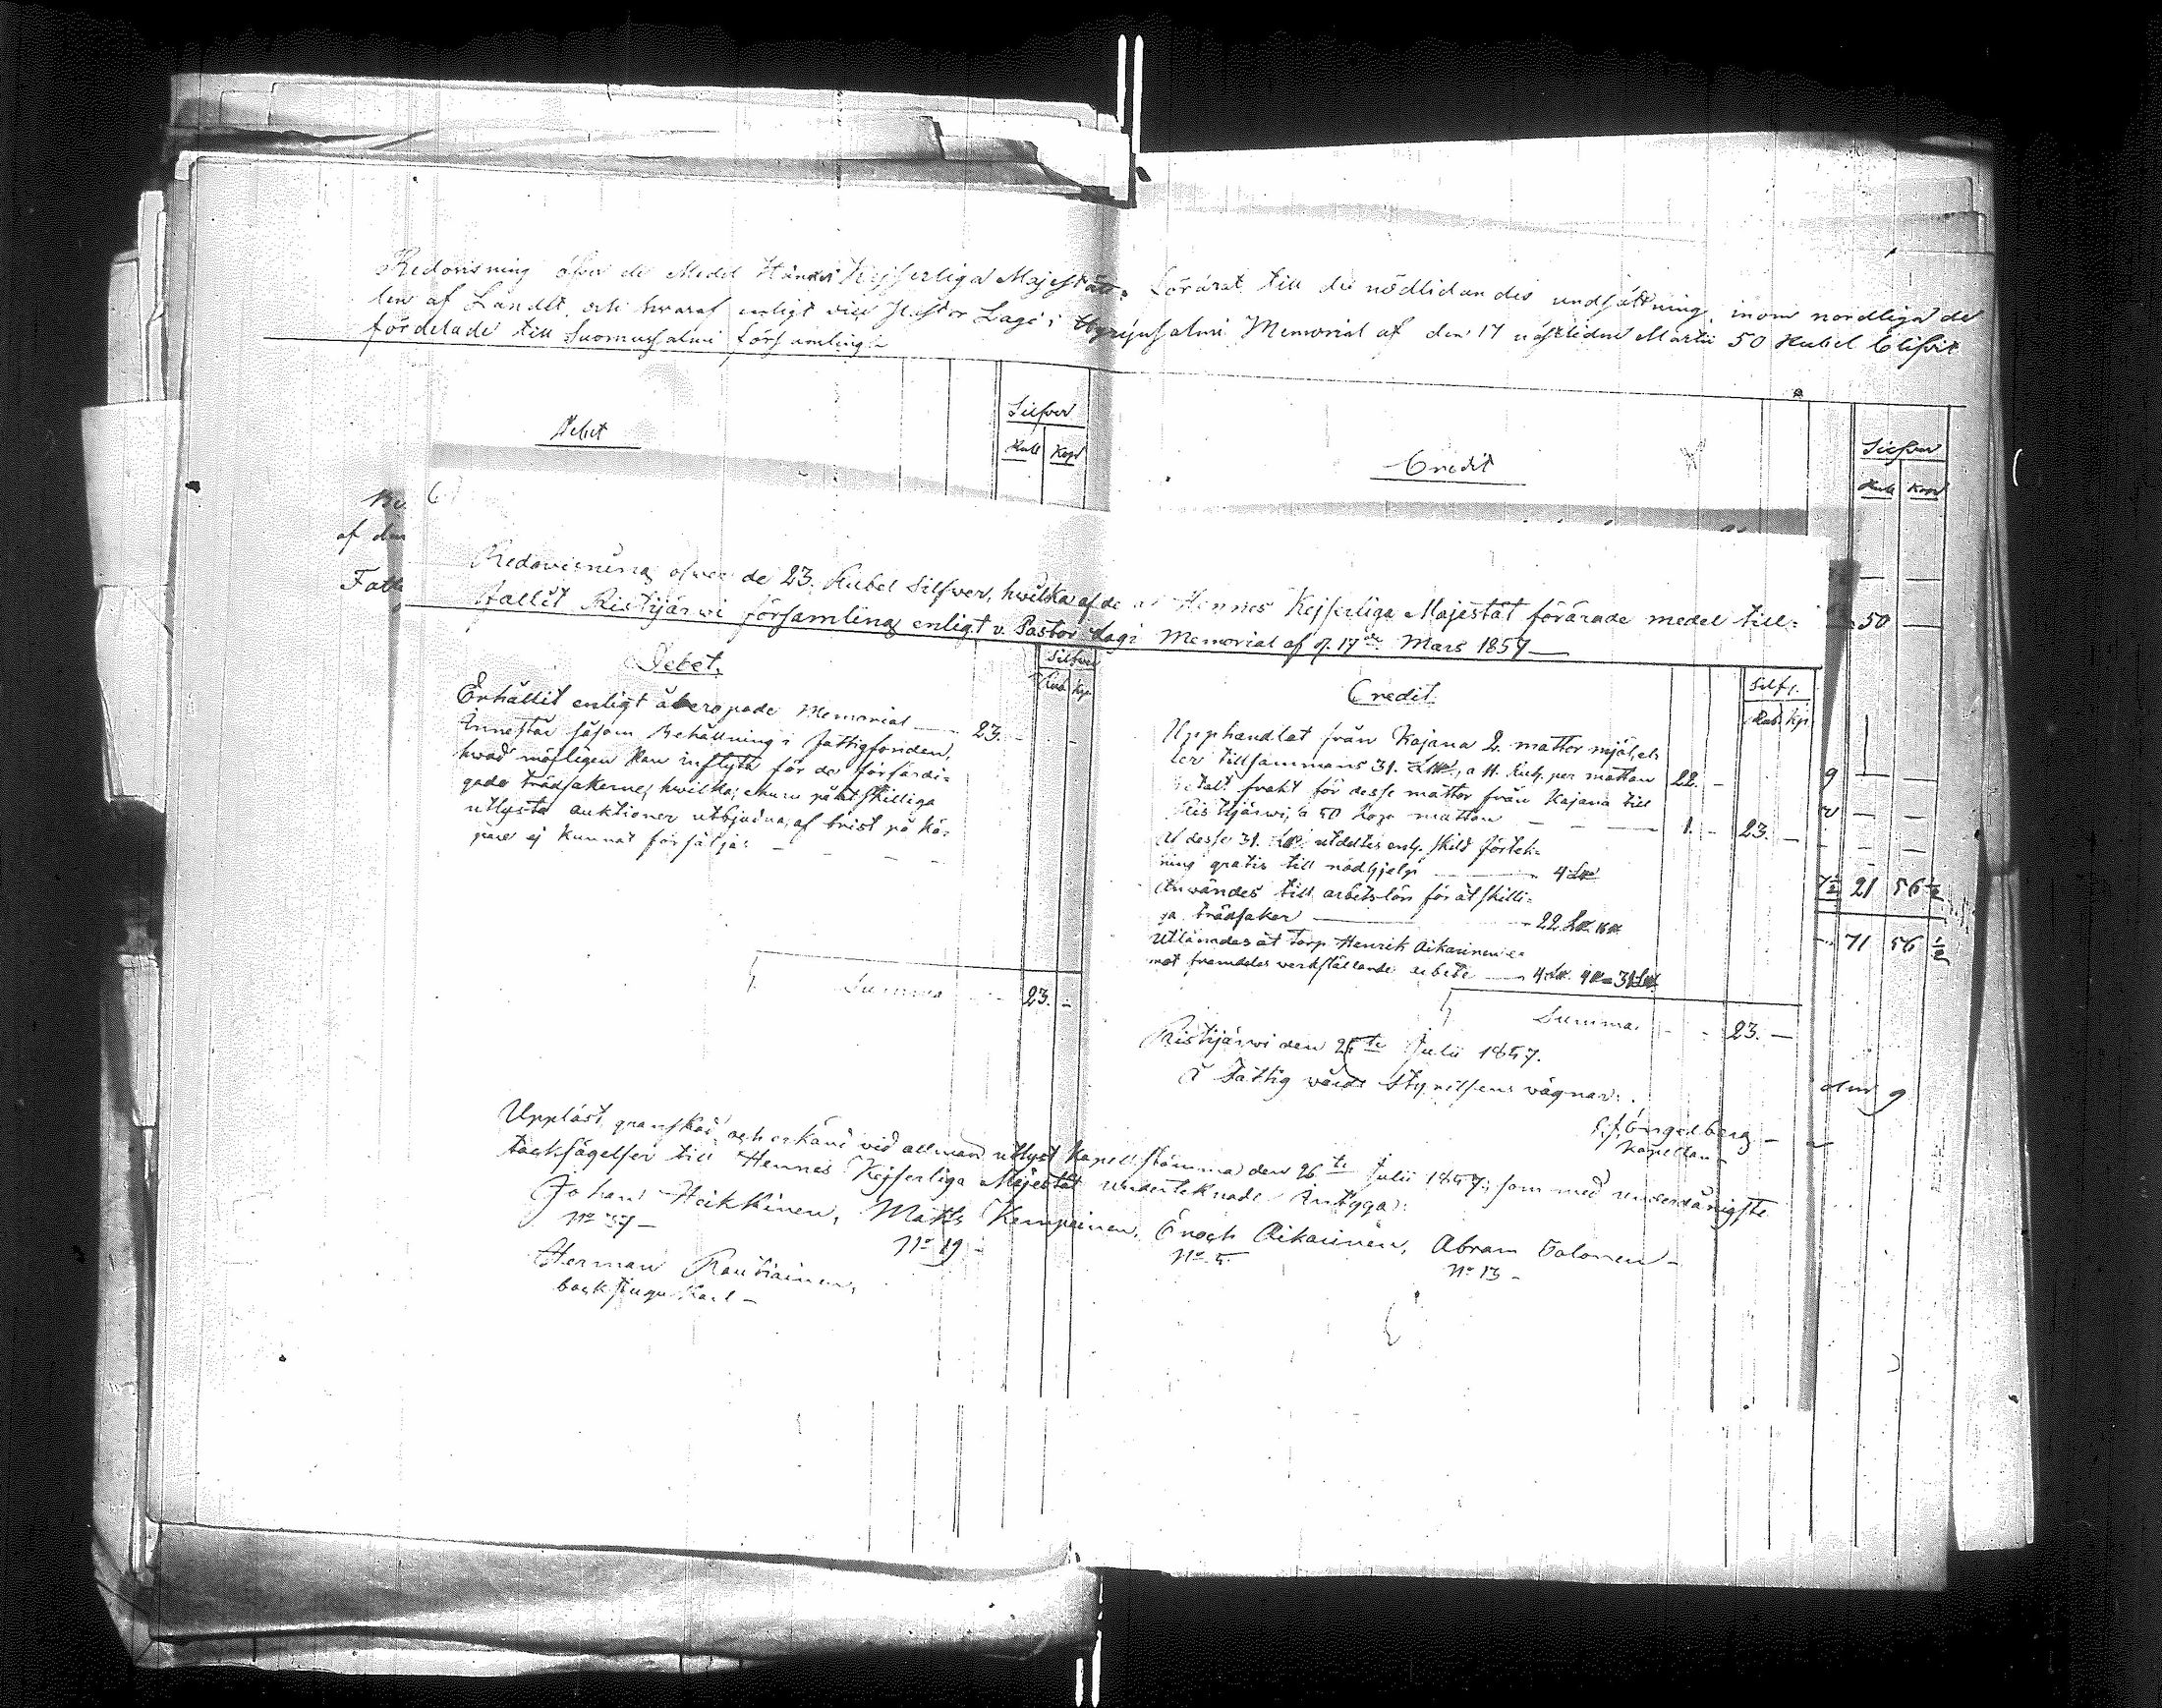 Redovisning öfver de Medel Hennes Kejserliga Majestät förärat till de nödlidandes undsättning, inom nordliga de
len af Landet, och hvaraf enligt vice Pastor Lagi i Hyrynsalmi Memorial af den 17 nästliden Martii 50 Rubel blifvit
fördelade till Suomussalmi församling
Debet
Silfver
Rub Kop
Credit
Silfver
Rub Kop
af den
50 —
21 56 1/2
71 56 1/2
den 9
Redovisning öfver de 23. Rubel Silfver, hvilka af de af Hennes Kejserliga Majestät förärade medel till-
fallit Ristijärwi församling enligt v. Pastor Lagi Memorial af d. 17de Mars 1857 —
Debet.
Silfver
Rub. Kp.
Erhållit enligt åberopade Memorial — 23. —
Innestår såsom Behållning i fattigfonden,
hwad möjligen kan inflyta för de förfärdi-
gade trädsakerne, hwilka, ehuru på åtskilliga
utlysta auktioner utbjudna, af brist på kö-
pare ej kunnat försäljas — — — —
Summa — 23. —
Credit.
Silfr.
Rub. Kp.
Upphandlat från Kajana 2. mattor mjöl, el-
ler tillsammans 31. L℔., a 11. Rub. per mattan 22. —
Betalt frakt för desse mattor från Kajana till
Ristijärwi, a 50 Kop. mattan — — — 1. — 23. —
Af desse 31. L℔. utdeltes enl. skild förtek-
ning gratis till nödhjelp — 4 L℔
Användes till arbetslön för åtskilli-
ga trädsaker — 22 L℔. 16 ℔.
Utlånades åt Torp. Henrik Aikarinen e-
mot framdeles werkställande arbete — 4 L℔. 4 ℔ = 31 L℔.
Summa — 23. —
Ristijärwi den 26te Julii 1857.
Å Fattigvårds Styrelsens vägnar:
Engelberg —
Kapellan —
Uppläst, granskad och erkänd vid allmän utlyst Kapellstämma den 26te Julii 1857; som med underdånigste
tacksägelser till Hennes Kejserliga Majestät undertecknade intyga:
Johan Heikkinen, Matts Kemppainen, Enoch Aikarinen, Abram Tolonen —
No 37 — No 19 — No 5. No 13 —
Herman Rautiainen,
backstugu Karl —